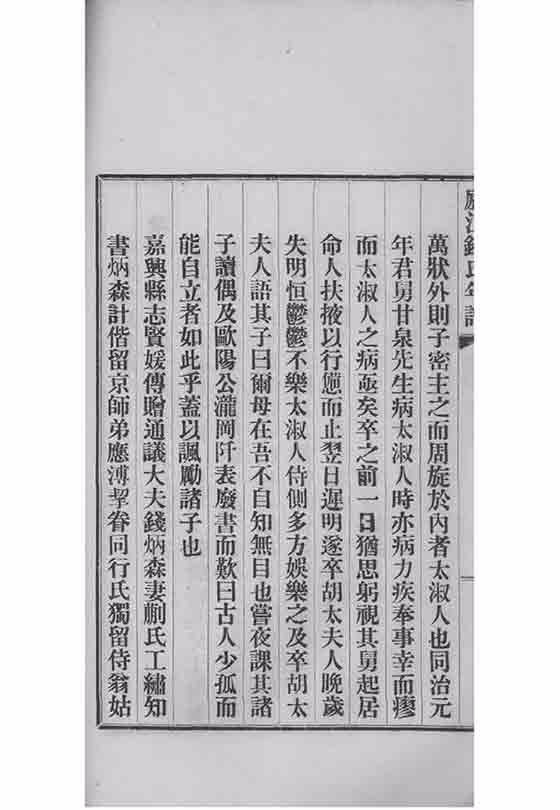 廬江錢氏年譜
萬狀外則子密主之而周旋於內者太淑人也同治元
年君舅甘泉先生病太淑人時亦病力疾奉事幸而瘳
而太淑人之病亟矣卒之前一日猶思躬視其舅起居
命人扶掖以行憊而止翌日遲明遂卒胡太夫人晚歲
失明恒鬱鬱不樂太淑人侍側多方娛樂之及卒胡太
夫人語其子曰爾母在吾不自知無目也嘗夜課其諸
子讀偶及歐陽公瀧岡阡表廢書而歎曰古人少孤而
能自立者如此乎蓋以諷勵諸子也
嘉興縣志賢媛傳贈通議大夫錢炳森妻蒯氏工繡知
書炳森計偕留京師弟應溥挈眷同行氏獨留侍翁姑